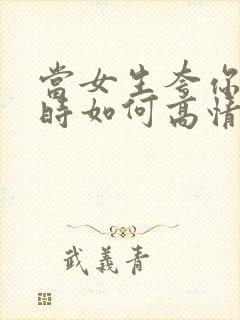 當女生夸你
時如何高情
武義青